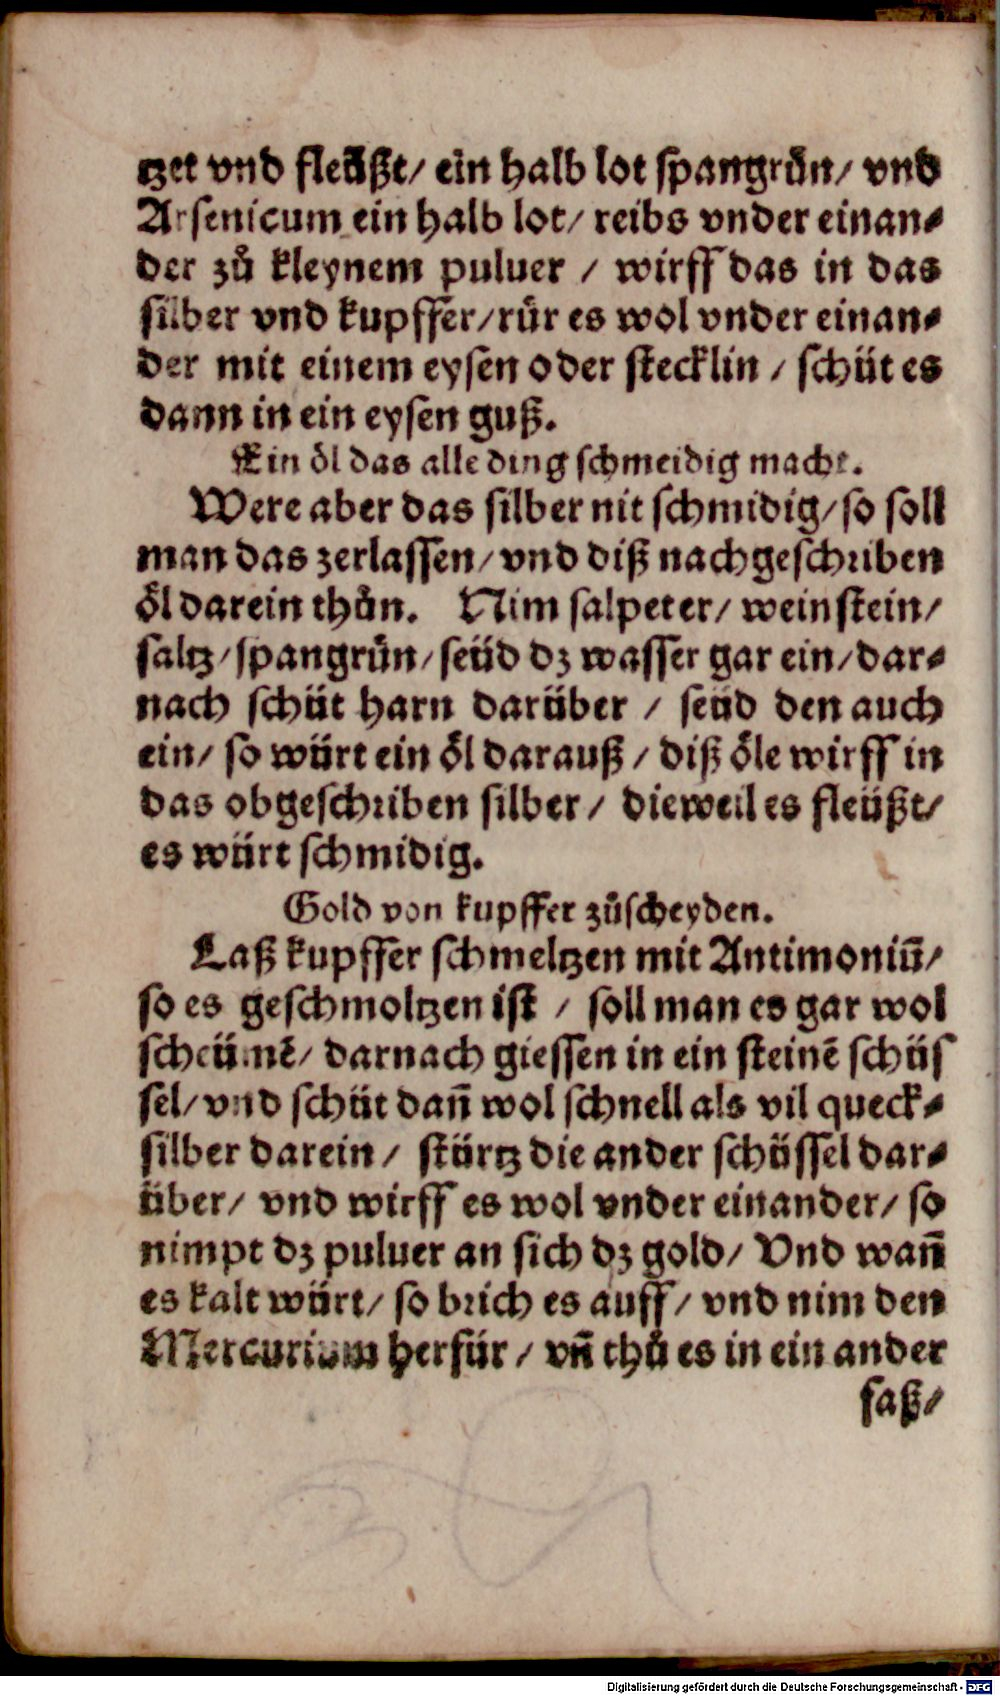 tzet vnd fleüßt/ ein halb lot spangrün/ vnd
Arsenicum ein halb lot/ reibs vnder einan⸗
der zů kleynem puluer / wirff das in das
silber vnd kupffer/rür es wol vnder einan⸗
der mit einem eysen oder stecklin / schüt es
dann in ein eysen guß.
Ein öl das alle ding schmeidig macht.
Were aber das silber nit schmidig/so soll
man das zerlassen/vnd diß nachgeschriben
öl darein thůn. Nim salpeter/ weinstein/
saltz/spangrün/seüd dz wasser gar ein/dar⸗
nach schüt harn darüber / seüd den auch
ein/ so würt ein öl darauß / diß öle wirff in
das obgeschriben silber/ dieweil es fleüßt/
es würt schmidig.
Gold von kupffer zůscheyden.
Laß kupffer schmeltzen mit Antimoniū/
so es geschmoltzen ist / soll man es gar wol
scheümē/ darnach giessen in ein steinē schüs
sel/vnd schüt dañ wol schnell als vil queck⸗
silber darein/ stürtz die ander schüssel dar⸗
über/ vnd wirff es wol vnder einander/ so
nimpt dz puluer an sich dz gold/ Vnd wañ
es kalt würt/ so brich es auff/ vnd nim den
Mercurium herfür / vñ thů es in ein ander
faß/
Digitalisierung gefördert durch die Deutsche Forschungsgemeinschaft - DFG